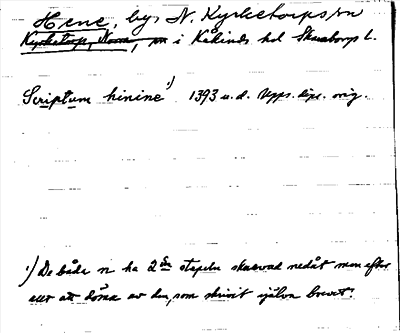 Hene, by, N. Kyrketorps sn
Kyrketorp, Norra, sn i Kåkinds hd Skaraborgs l.
Scriptum hinine 1) 1393 u.d. Upps. dipl. orig.
1) De båda n ha 2dra stapeln skrivad nedåt men efter
att döma av den, som skrivit själva brevet.